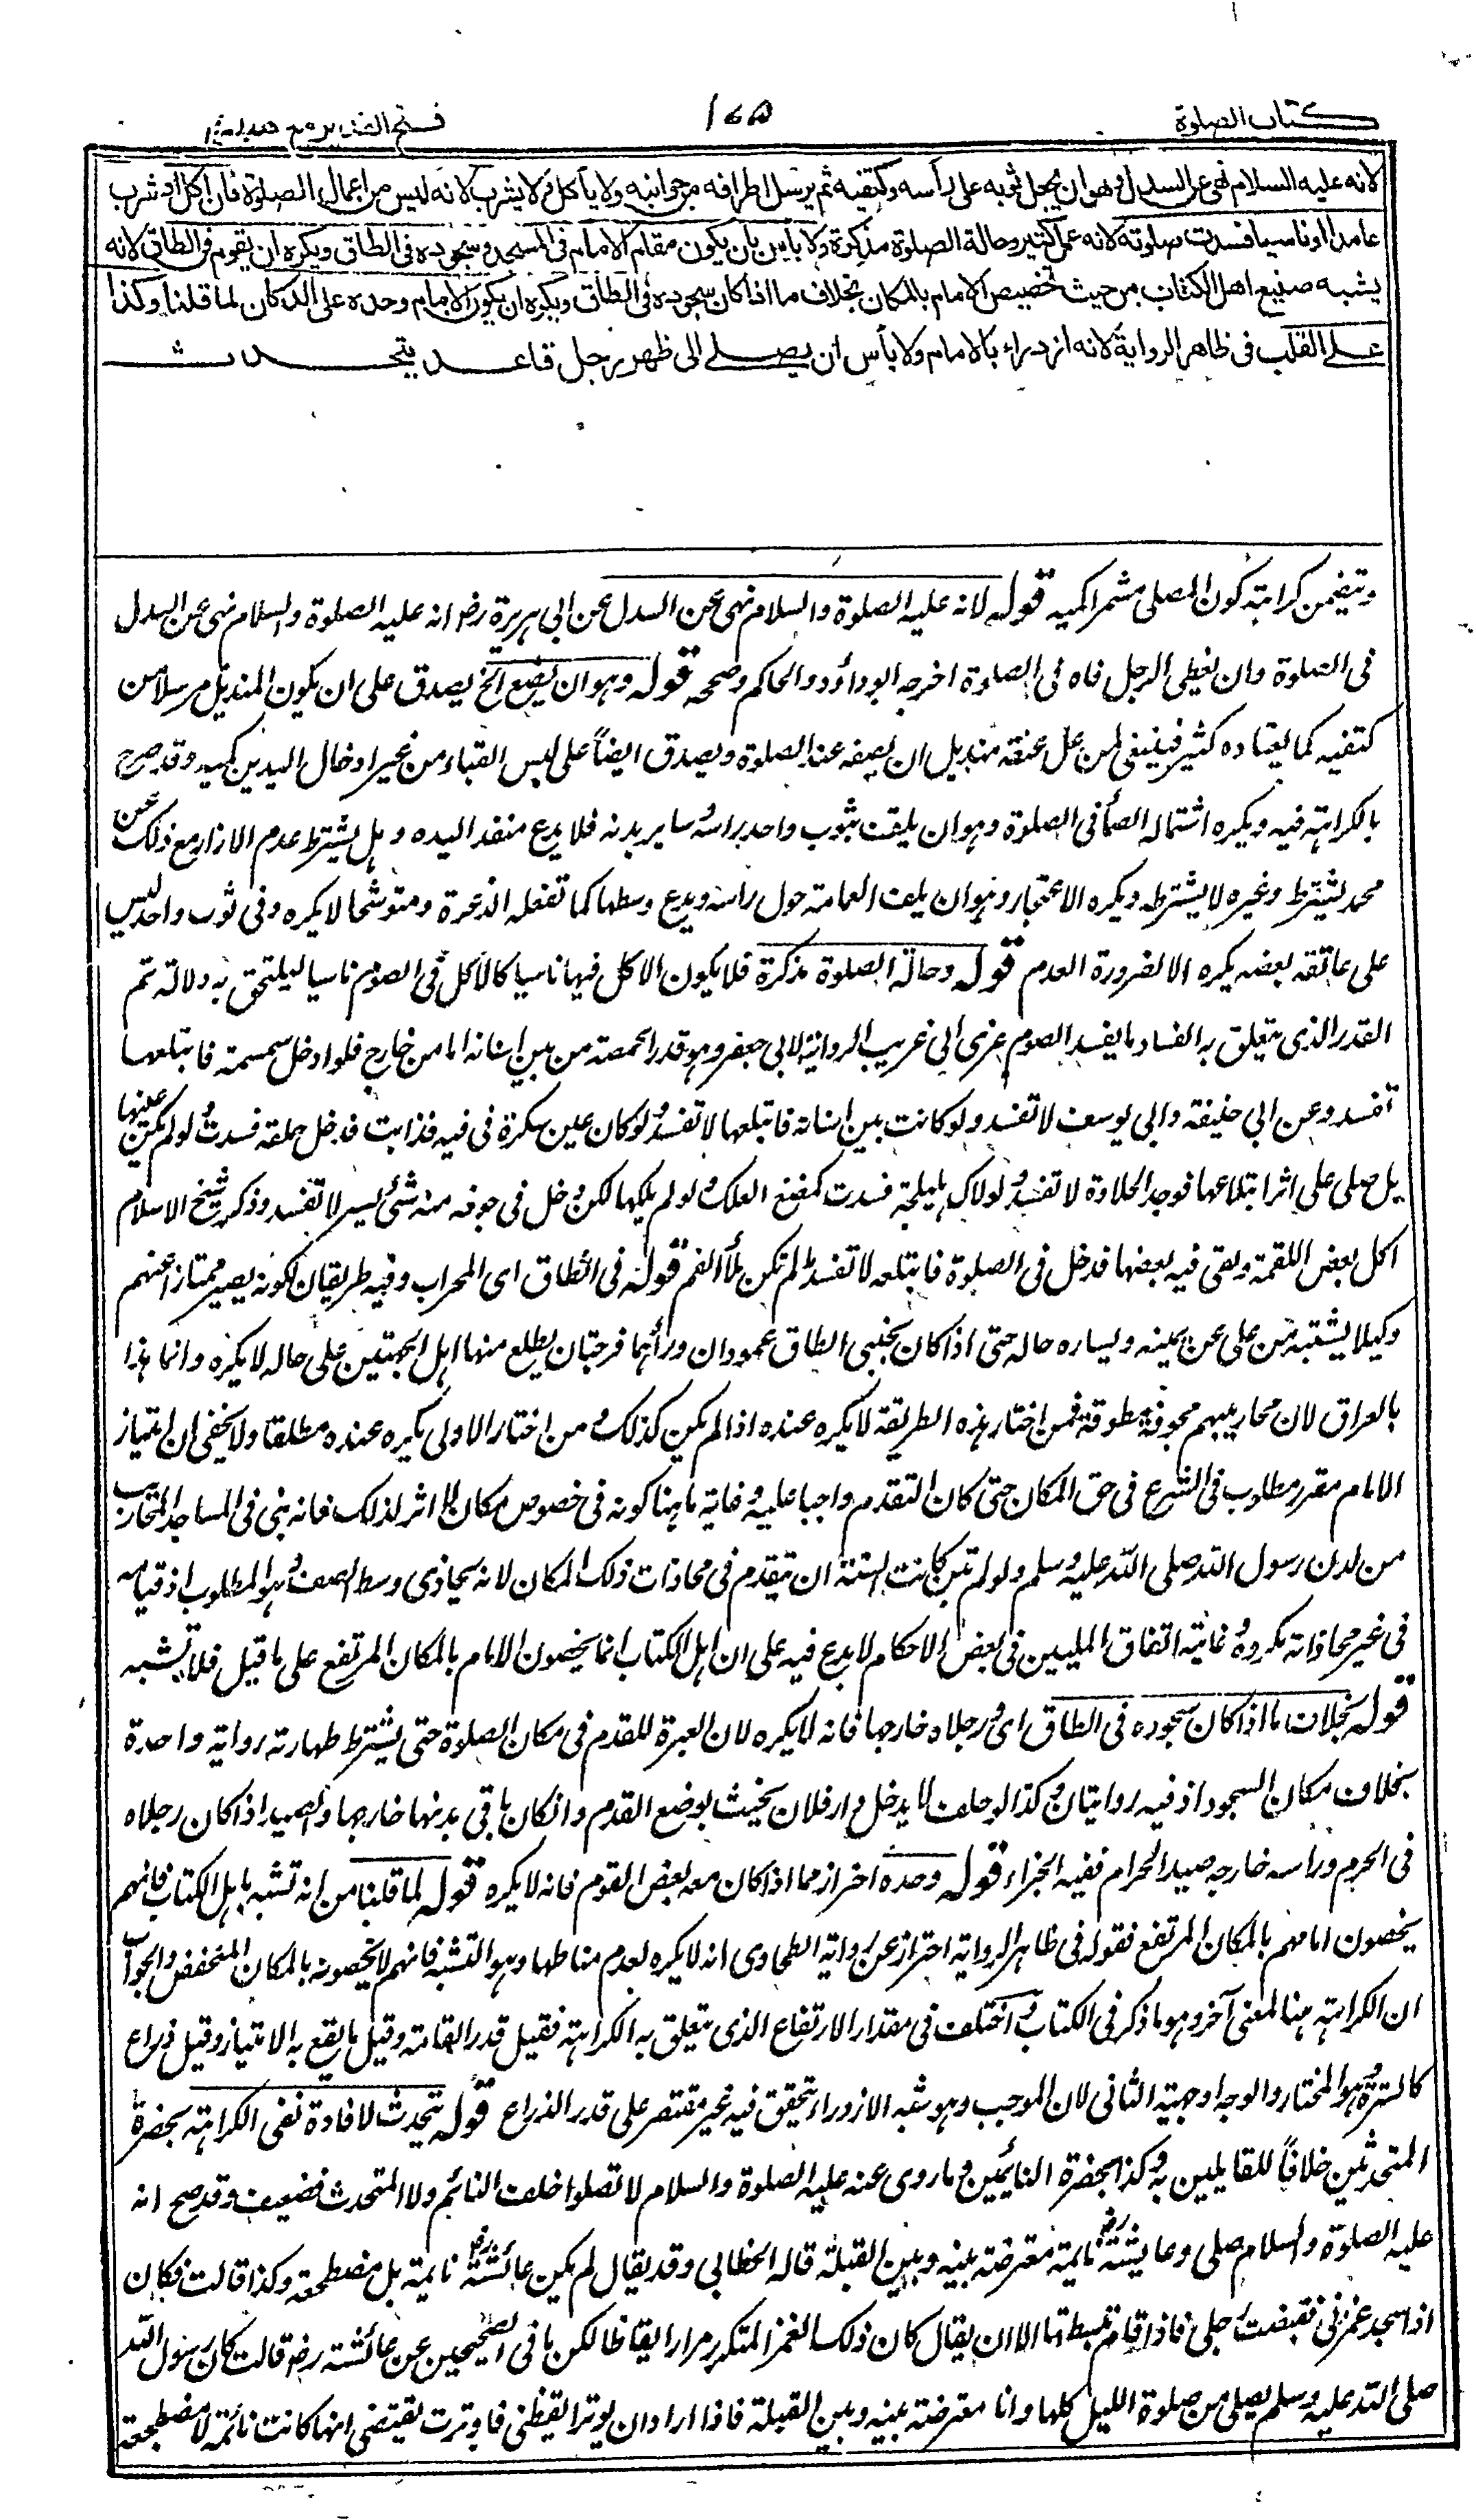 كتاب الصلوة
١٧٥
فتح القدير مع هدايه
لانه عليه السلام نهى عن السدل وهو ان يجعل ثوبه على رأسه وكتفيه ثم يرسل اطرافه من جوانبه ولا يأكل ولا يشرب لانه ليس من اعمال الصلوة فان اكل او شرب
عامدا او ناسيا فسدت صلوته لانه عمل كثير وحالة الصلوة مذكرة ولا بأس بان يكون مقام الامام في المسجد وسجوده في الطاق ويكره ان يقوم في الطاق لانه
يشبه صنيع اهل الكتاب من حيث تخصيص الامام بالمكان بخلاف ما اذا كان سجوده في الطاق ويكره ان يكون الامام وحده على الدكان لما قلنا وكذا
على القلب في ظاهر الرواية لانه ازدراء بالامام ولا بأس ان يصلے الى ظهر رجل قاعد يتحدث
وتضمن كراهته كون المصلي مشمرا كميه قوله لانه عليه الصلوة والسلام نهى عن السدل عن ابي هريرة رضـ انه عليه الصلوة والسلام نهى عن السدل
في الصلوة وان يغطي الرجل فاه في الصلوة اخرجه ابو داؤد والحاكم وصححه قوله وهو ان يضع الخ يصدق على ان يكون المنديل مرسلا من
كتفيه كما يعتاده كثير فينبغي لمن على عنقه منديل ان يضعه عند الصلوة ويصدق ايضاً على لبس القباء من غير ادخال اليدين كميه وقد صرح
بالكراهة فيه ويكره اشتمال الصمأ في الصلوة وهو ان يلف بثوب واحد رأسه وسائر بدنه فلا يدع منفذا ليده وهل يشترط عدم الازار مع ذلك عن
محمد يشترط وغيره لا يشترطه ويكره الاعتجار وهو ان يلف العمامة حول راسه ويدع وسطها كما تفعله الذعرة ومتوشحا لا يكره وفي ثوب واحد ليس
على عاتقه بعضه يكره الا لضرورة العدم قوله وحالة الصلوة مذكرة فلا يكون الاكل فيها ناسيا كالاكل في الصوم ناسيا ليلتحق به دلالة ثم
القدر الذي يتعلق به الفساد ما يفسد الصوم عزى الى غريب الرواية لابي جعفر وهو قدر الحمصة من بين اسنانه اما من خارج فلو ادخل سمسمة فابتلعها
تفسد وعن ابي حنيفة وابي يوسف لا تفسد ولو كانت بين اسنانه فابتلعها لا تفسد ولو كان عين سكرة في فيه فذابت فدخل حلقه فسدت ولو لم يكن عينها
بل صلى على اثر ابتلاعها فوجد الحلاوة لا تفسد ولو لاك هليلجة فسدت كمضغ العلك ولو لم يلكها لكن دخل في جوفه منه شئ يسير لا تفسد وذكر شيخ الاسلام
اكل بعض اللقمة وبقي في فيه بعضها فدخل في الصلوة فابتلعه لا تفسد ما لم تكن ملأ الفم قوله في الطاق اي المحراب وفيه طريقان كونه يصير ممتازا عنهم
وكيلا يشتبه من على عن يمينه ويساره حاله حتى اذا كان بجنبي الطاق عمودان ورائهما فرجتان يطلع منها اهل الجهتين على حاله لا يكره وانما هذا
بالعراق لان محاريبهم مجوفة مطوقة فمن اختار هذه الطريقة لا يكره عنده اذا لم يكن كذلك ومن اختار الاولى يكره عنده مطلقا ولا يخفى ان امتياز
الامام مقرر مطلوب في الشرع في حق المكان حتى كان التقدم واجبا عليه وغاية ما هنا كونه في خصوص مكان ولا اثر لذلك فانه بني في المساجد المحاريب
من لدن رسول الله صلى الله عليه وسلم ولو لم تبن كانت السنة ان يتقدم في محاذات ذلك المكان لانه يحاذي وسط الصف وهو المطلوب اذ قيامه
في غير محاذاته مكروه وغايته اتفاق الملتين في بعض الاحكام لا بدع فيه على ان اهل الكتاب انما يخصون الامام بالمكان المرتفع على ما قيل فلا تشبه
قوله بخلاف ما اذا كان سجوده في الطاق اي ورجلاه خارجها فانه لا يكره لان العبرة للقدم في مكان الصلوة حتى يشترط طهارته رواية واحدة
بخلاف مكان السجود اذ فيه روايتان وكذا لو حلف لا يدخل دار فلان يحنث بوضع القدم وان كان باقي بدنها خارجها والصيد اذا كان رجلاه
في الحرم وراسه خارجه صيد الحرام ففيه الجزاء قوله وحده احتراز عما اذا كان معه بعض القوم فانه لا يكره قوله لما قلنا من انه تشبه باهل الكتاب فانهم
يخصون امامهم بالمكان المرتفع فقوله في ظاهر الرواية احتراز عن رواية الطحاوي انه لا يكره لعدم مناطها وهو التشبه فانهم لا يخصونه بالمكان المنخفض والجواب
ان الكراهة هنا لمعنى آخر وهو ما ذكر في الكتاب واختلف في مقدار الارتفاع الذي يتعلق به الكراهة فقيل قدر القامة وقيل ما يقع به الامتياز وقيل ذراع
كالسترة وهو المختار والوجه اوجهية الثاني لان الموجب وهو شبه الازدراء يتحقق فيه غير مقتصر على قدر الذراع قوله يتحدث لافادة نفي الكراهة بحضرة
المتحدثين خلافاً للقايلين به وكذا بحضرة النائمين وما روى عنه عليه الصلوة والسلام لا تصلوا خلف النائم ولا المتحدث فضعيف وقد صح انه
عليه الصلوة والسلام صلى وعايشة رضـ نايمة معترضة بينه وبين القبلة قاله الخطابي وقد يقال لم يكن عائشة رضـ نايمة بل مضطجعة وكذا قالت فكان
اذا سجد غمزني فقبضت رجلي فاذا قام بسطتها الا ان يقال كان ذلك الغمز المتكرر مرارا ايقاظا لكن ما في الصحيحين عن عائشة رضـ قالت كان رسول الله
صلى الله عليه وسلم يصلي من صلوة الليل كلها وانا معترضة بينه وبين القبلة فاذا اراد ان يوتر ايقظني فاوترت يقتضي انها كانت نائمة لا مضطجعة